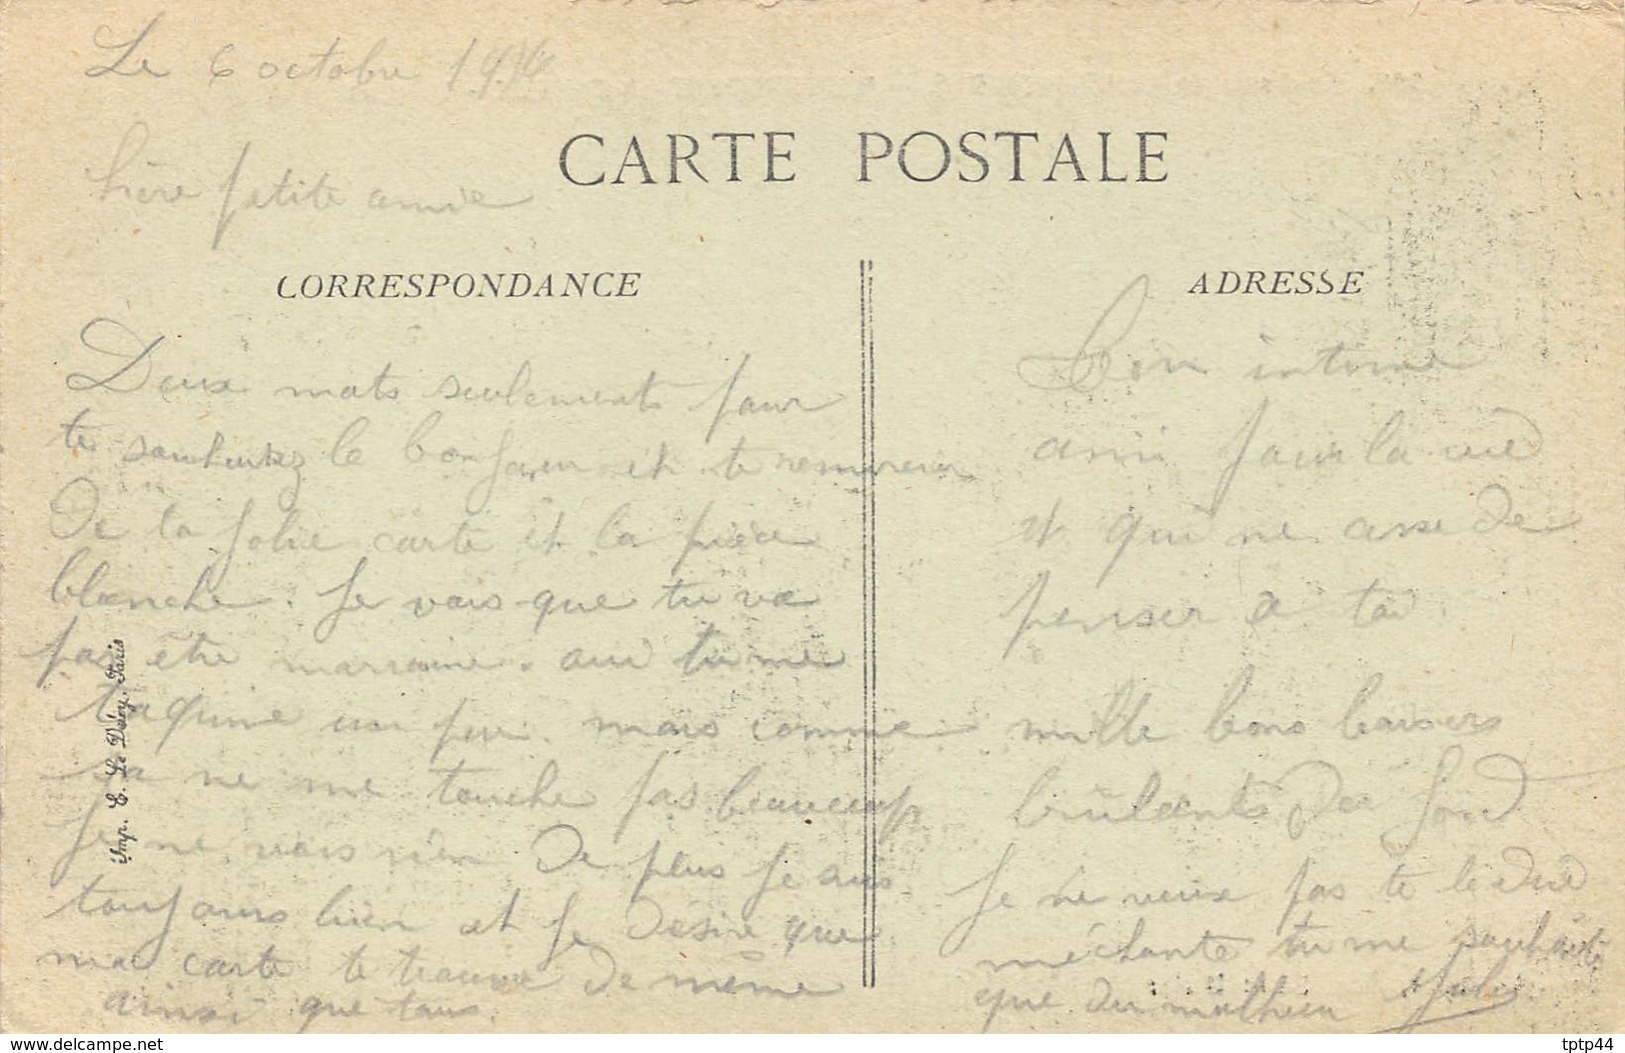 Le 6 octobre 191
CARTE POSTALE
hère petite amie
CORRESPONDANCE
ADRESSE
Deux mots seulements pour
te souhaitez le bonjour et te remercier
De ta jolie carte et la pièce
blanche. Je vois que tu va
pas être marraine. aussi tu me
taquine un peu mais comme
sa ne me touche pas beaucoup
Je ne vois rien De plus je suis
toujours bien et je Désire que
ma carte te trouve De même
ainsi que tous.
Ton intime
ami pour la vie
et qui ne cesse De
penser a toi
mille bons baisers
brûlants Du fond
Je ne veux pas te le dire
méchante tu me souhaite
que du malheur Jules
Imp. E. Le Deley, Paris
https://www.delcampe.net
tptp44